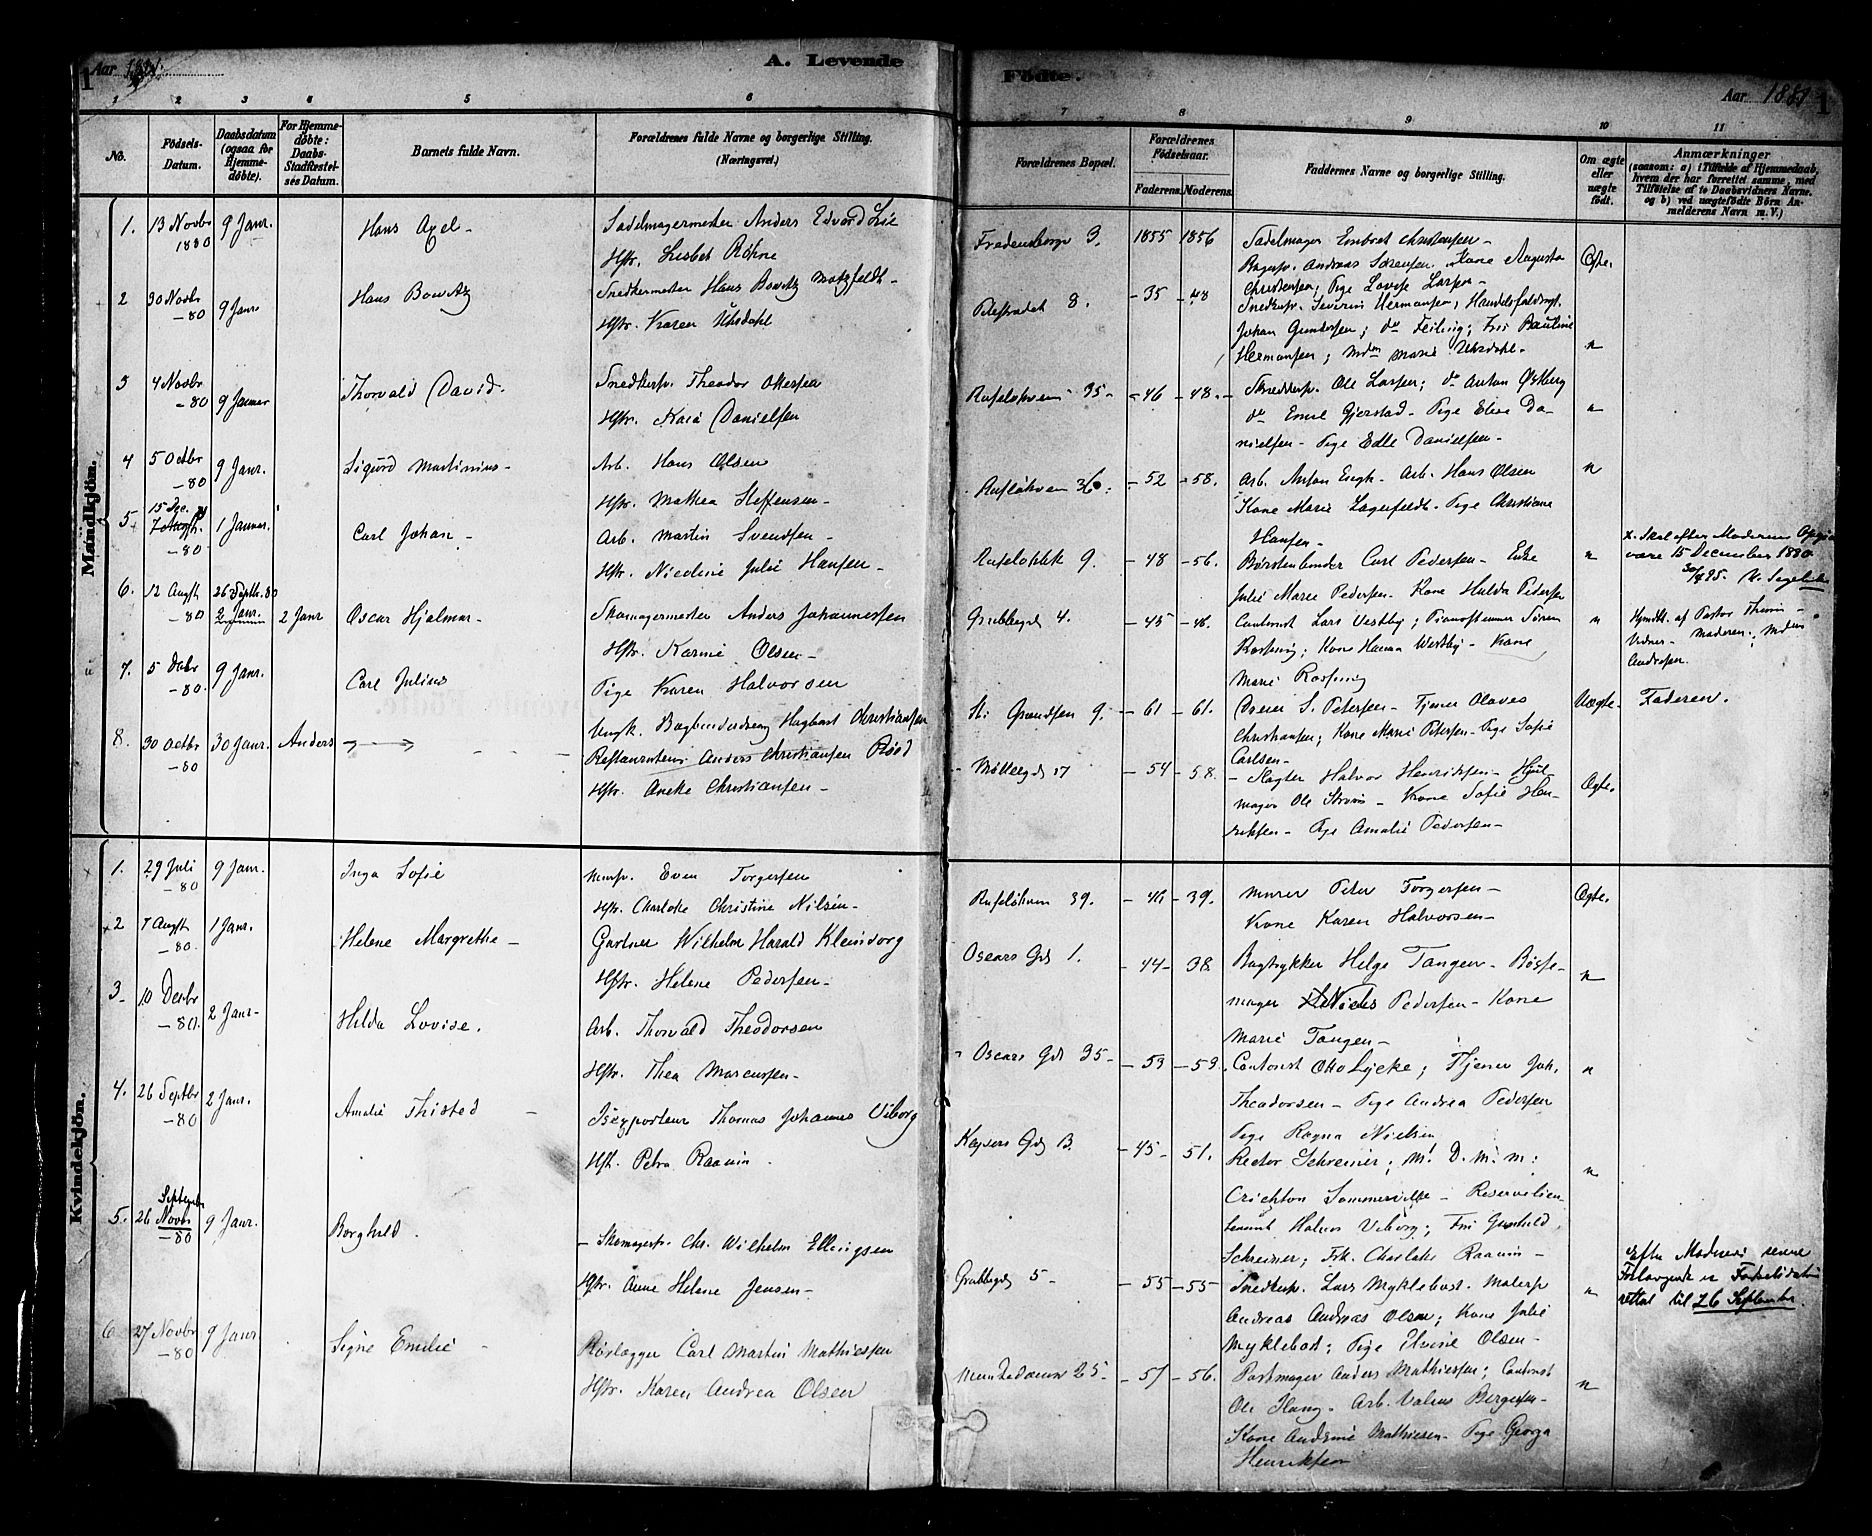 Aar 1881.
A. Levende
Födte.
Aar 1881
1
1 2 3 4 5 6
7 8 9 10 11
No.
Födsels-Datum.
Daabsdatum (ogsaa for Hjemme-döbte).
For Hjemme-döbte: Daabs-Stadfæstel-ses Datum.
Barnets fulde Navn.
Forældrenes fulde Navne og borgerlige Stilling. (Næringsvei.)
Forældrenes Bopæl.
Forældrenes Födselsaar.
Faderens. Moderens.
Faddernes Navne og borgerlige Stilling.
Om ægte eller uægte födt.
Anmærkninger
(saasom: a) i Tilfælde af Hjemmedaab,
hvem der har forrettet samme, med
Tilföielse af to Daabsvidners Navne,
og b) ved uægtefödte Börn An-
melderens Navn m. V.)
Mandkjön.
1. 13 Novbr 1880 9 Janr. Hans Axel -
Sadelmagermester Anders Edvard Lie
Hstr. Lisbet Röhne
Fredensborgv 3. 1855 1856
Sadelmager Embret Christensen -
Bagersv. Andreas Sörensen. Kone Augusta
Christensen; Pige Lovise Larsen -
Ægte.
2 30 Novbr - 80 9 Janr Hans Bowitz
Snedkermester Hans Bowitz Matzfeldt -
Hstr. Karen Uhrdahl
Pilestrædet 8. - 35 - 48
Snedkersv. Severin Hermansen; Handelsfuldmgt.
Johan Gundersen; do Feiling; Fru Pauline
Hermansen; Mdm Marie Uhrdahl -
"
3 4 Novbr - 80 9 Januar Thorvald David.
Snedkersv. Theodor Ottersen
Hstr. Kaia Danielsen
Ruselökveien 35 - - 46 - 48 -
Snedkersv. Ole Larsen; do Anton Östberg
do Emil Gjerstad - Pige Elise Da-
nielsen - Pige Edle Danielsen -
"
4 5 Octbr - 80 9 Janr. Sigurd Martinius -
Arb. Hans Olsen
Hstr. Mathea Steffensen -
Ruselökveien 36. - 52 - 58.
Arb. Anton Engh - Arb. Hans Olsen
Kone Marie Lagerfeldt - Pige Christiane
Hansen -
"
5 15 Dec. 7 Augst. - 80 1 Januar. Carl Johan -
Arb. Martin Svendsen -
Hstr. Nicoline Julie Hansen -
Ruselökbk 9. - 48 - 56.
Börstenbinder Carl Pedersen - Enke
Julie Marie Pedersen - Kone Hulda Pedersen
"
x. Skal efter Moderens Opgive
være 15 December 1880.
6. 12 Augst - 80 26 Septbr. 80 2 Janr. 2 Janr Oscar Hjalmar -
Skomagermester Anders Johannessen
Hstr. Karine Olsen -
Grubbegd 4. - 45 - 46.
Contorist Lars Vestby; Pianostemmer Sören
Rosseng; Kone Hanna Westby - Kone
Marie Rosseng
"
Hjmdbt. af Pastor Thinn -
Vidner - Moderen; Mdm
Andresen.
7. 5 Decbr - 80. 9 Janr. Carl Julius
Pige Karen Halvorsen
Ungk. Bogbinderdreng Hagbart Christiansen
St. Grændsen 9. - 61 - 61.
S. Petersen - Tjener Olavas
Christiansen; Kone Marie Petersen - Pige Sofie
Carlsen -
Uægte. Faderen.
8. 30 Octbr - 80 30 Janr. Anders
Restaurateur Anders Christiansen Röed
Hstr. Aneke Christiansen -
Möllergd 17 - 54 - 58.
Slagter Halvor Henriksen - Hjul-
mager Ole Strøm - Kone Sofie Hen-
riksen - Pige Amalie Pedersen -
Ægte.
Kvindekjön.
1. 29 Juli - 80 9 Janr. Inga Sofie
Mursv. Even Torgersen
Hstr. Charlotte Christine Nilsen -
Ruselökvn 39. - 46 - 39.
Murer Peter Torgersen -
Kone Karen Halvorsen -
Ægte.
2 7 Augst - 80. 1 Janr. Helene Margrethe -
Gartner Wilhelm Harald Kleinvorg
Hstr. Helene Pedersen -
Oscars Gd 1. - 44 - 38
Bogtrykker Helge Tangen - Bösse-
mager Niels Pedersen - Kone
Marie Tangen -
"
3 10 Decbr - 80. 2 Janr - Hilda Lovise.
Arb. Thorvald Theodorsen
Hstr. Thea Marcussen -
Oscars Gd 35 - - 53 - 59.
Contorist Otto Lycke; Tjener Joh.
Theodorsen - Pige Andrea Pedersen
Pige Ragna Nielsen
"
4. 26 Septbr - 80 2 Janr. Amalie Thisted -
Isexporteur Thomas Johannes Viborg
Hst. Petra Raavin.
Keysers Gd 13. - 45 - 51.
Rector Schreiner; Mr. D. M. M:
Crichton Sommerville - Reservelieu-
tenant Halvor Viborg; Fru Gunhild
Schreiner; Frk. Charlotte Raavin -
"
5. 26 September Novbr - 80 9 Janr. Borghild.
Skomagersv. Chr. Wilhelm Ellingsen
Hstr. Anne Helene Jensen -
Grubbegd 5 - - 55 - 55
Snedkersv. Lars Myklebost. Malersv
Andreas Andreas Olsen; Kone Julie
Myklebost; Pige Elvine Olsen -
"
Efter Moderens senere
Forlangende er Fødselsdatum
rettet til 26 September.
6 27 Novbr - 80 9 Janr Signe Emilie -
Rörlægger Carl Martin Mathiesen
Hstr. Karen Andrea Olsen
Munkedamsv 25 - - 57 - 56.
Postmager Anders Mathiesen; Contorist
Ole Haug - Arb. Valius Bergersen -
Kone Andrine Mathiesen - Pige Georga
Henriksen
"